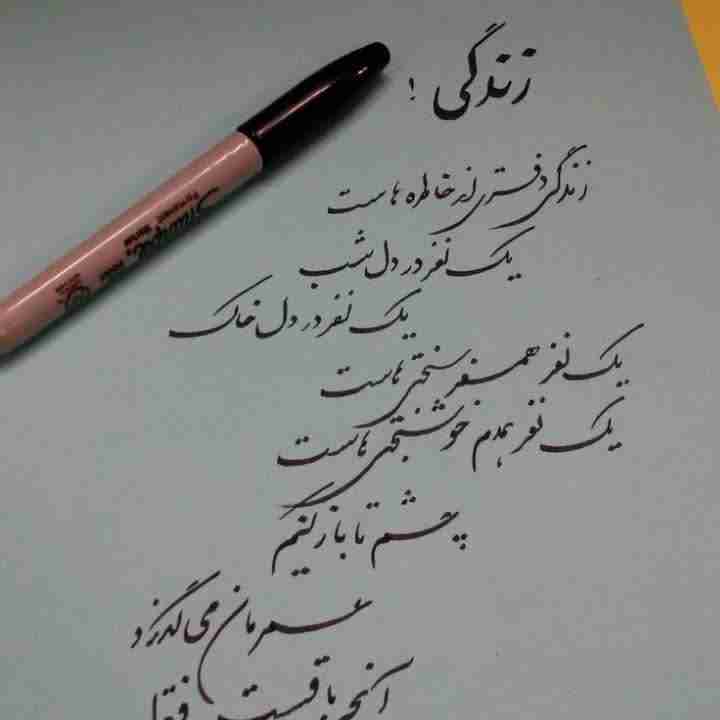 زندگی !
زندگی دفتری از خاطره هاست
یک نفر در دل شب
یک نفر در دل خاک
یک نفر همسفر سختی هاست
یک نفر همدم خوشبختی هاست
چشم تا باز کنیم
عمرمان می گذرد
آنچه باقیست فقط
Sharpie